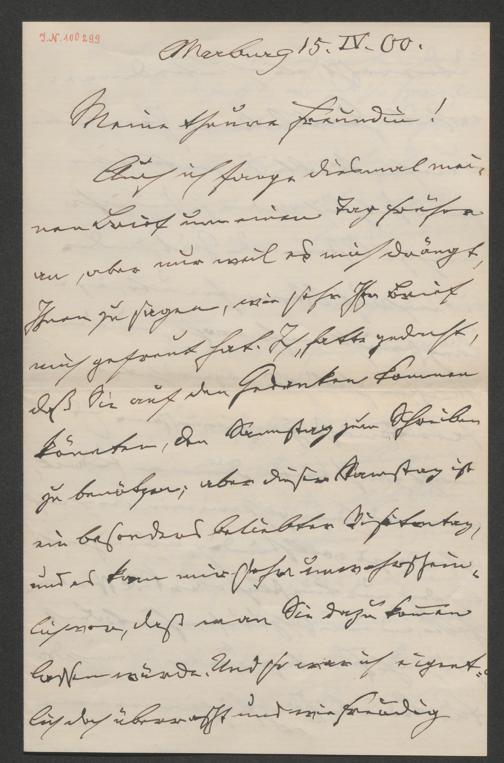 I.N. 100299
Marburg 15. IV. 00.
Meine theure Freundin!
Auch ich fange diesmal mei-
nen Brief um einen Tag früher
an, aber nur weil es mich drängt,
Ihnen zu sagen, wie sehr Ihr Brief
mich gefreut hat. Ich hatte gedacht,
daß Sie auf den Gedanken kommen
könnten, den Samstag zum Schreiben
zu benützen; aber dieser Samstag ist
ein besonders beliebter Visitentag,
und es kam mir sehr unwahrschein-
lich vor, daß man Sie dazu kommen
lassen würde. Und so war ich eigent-
lich doch überrascht und wie freudig